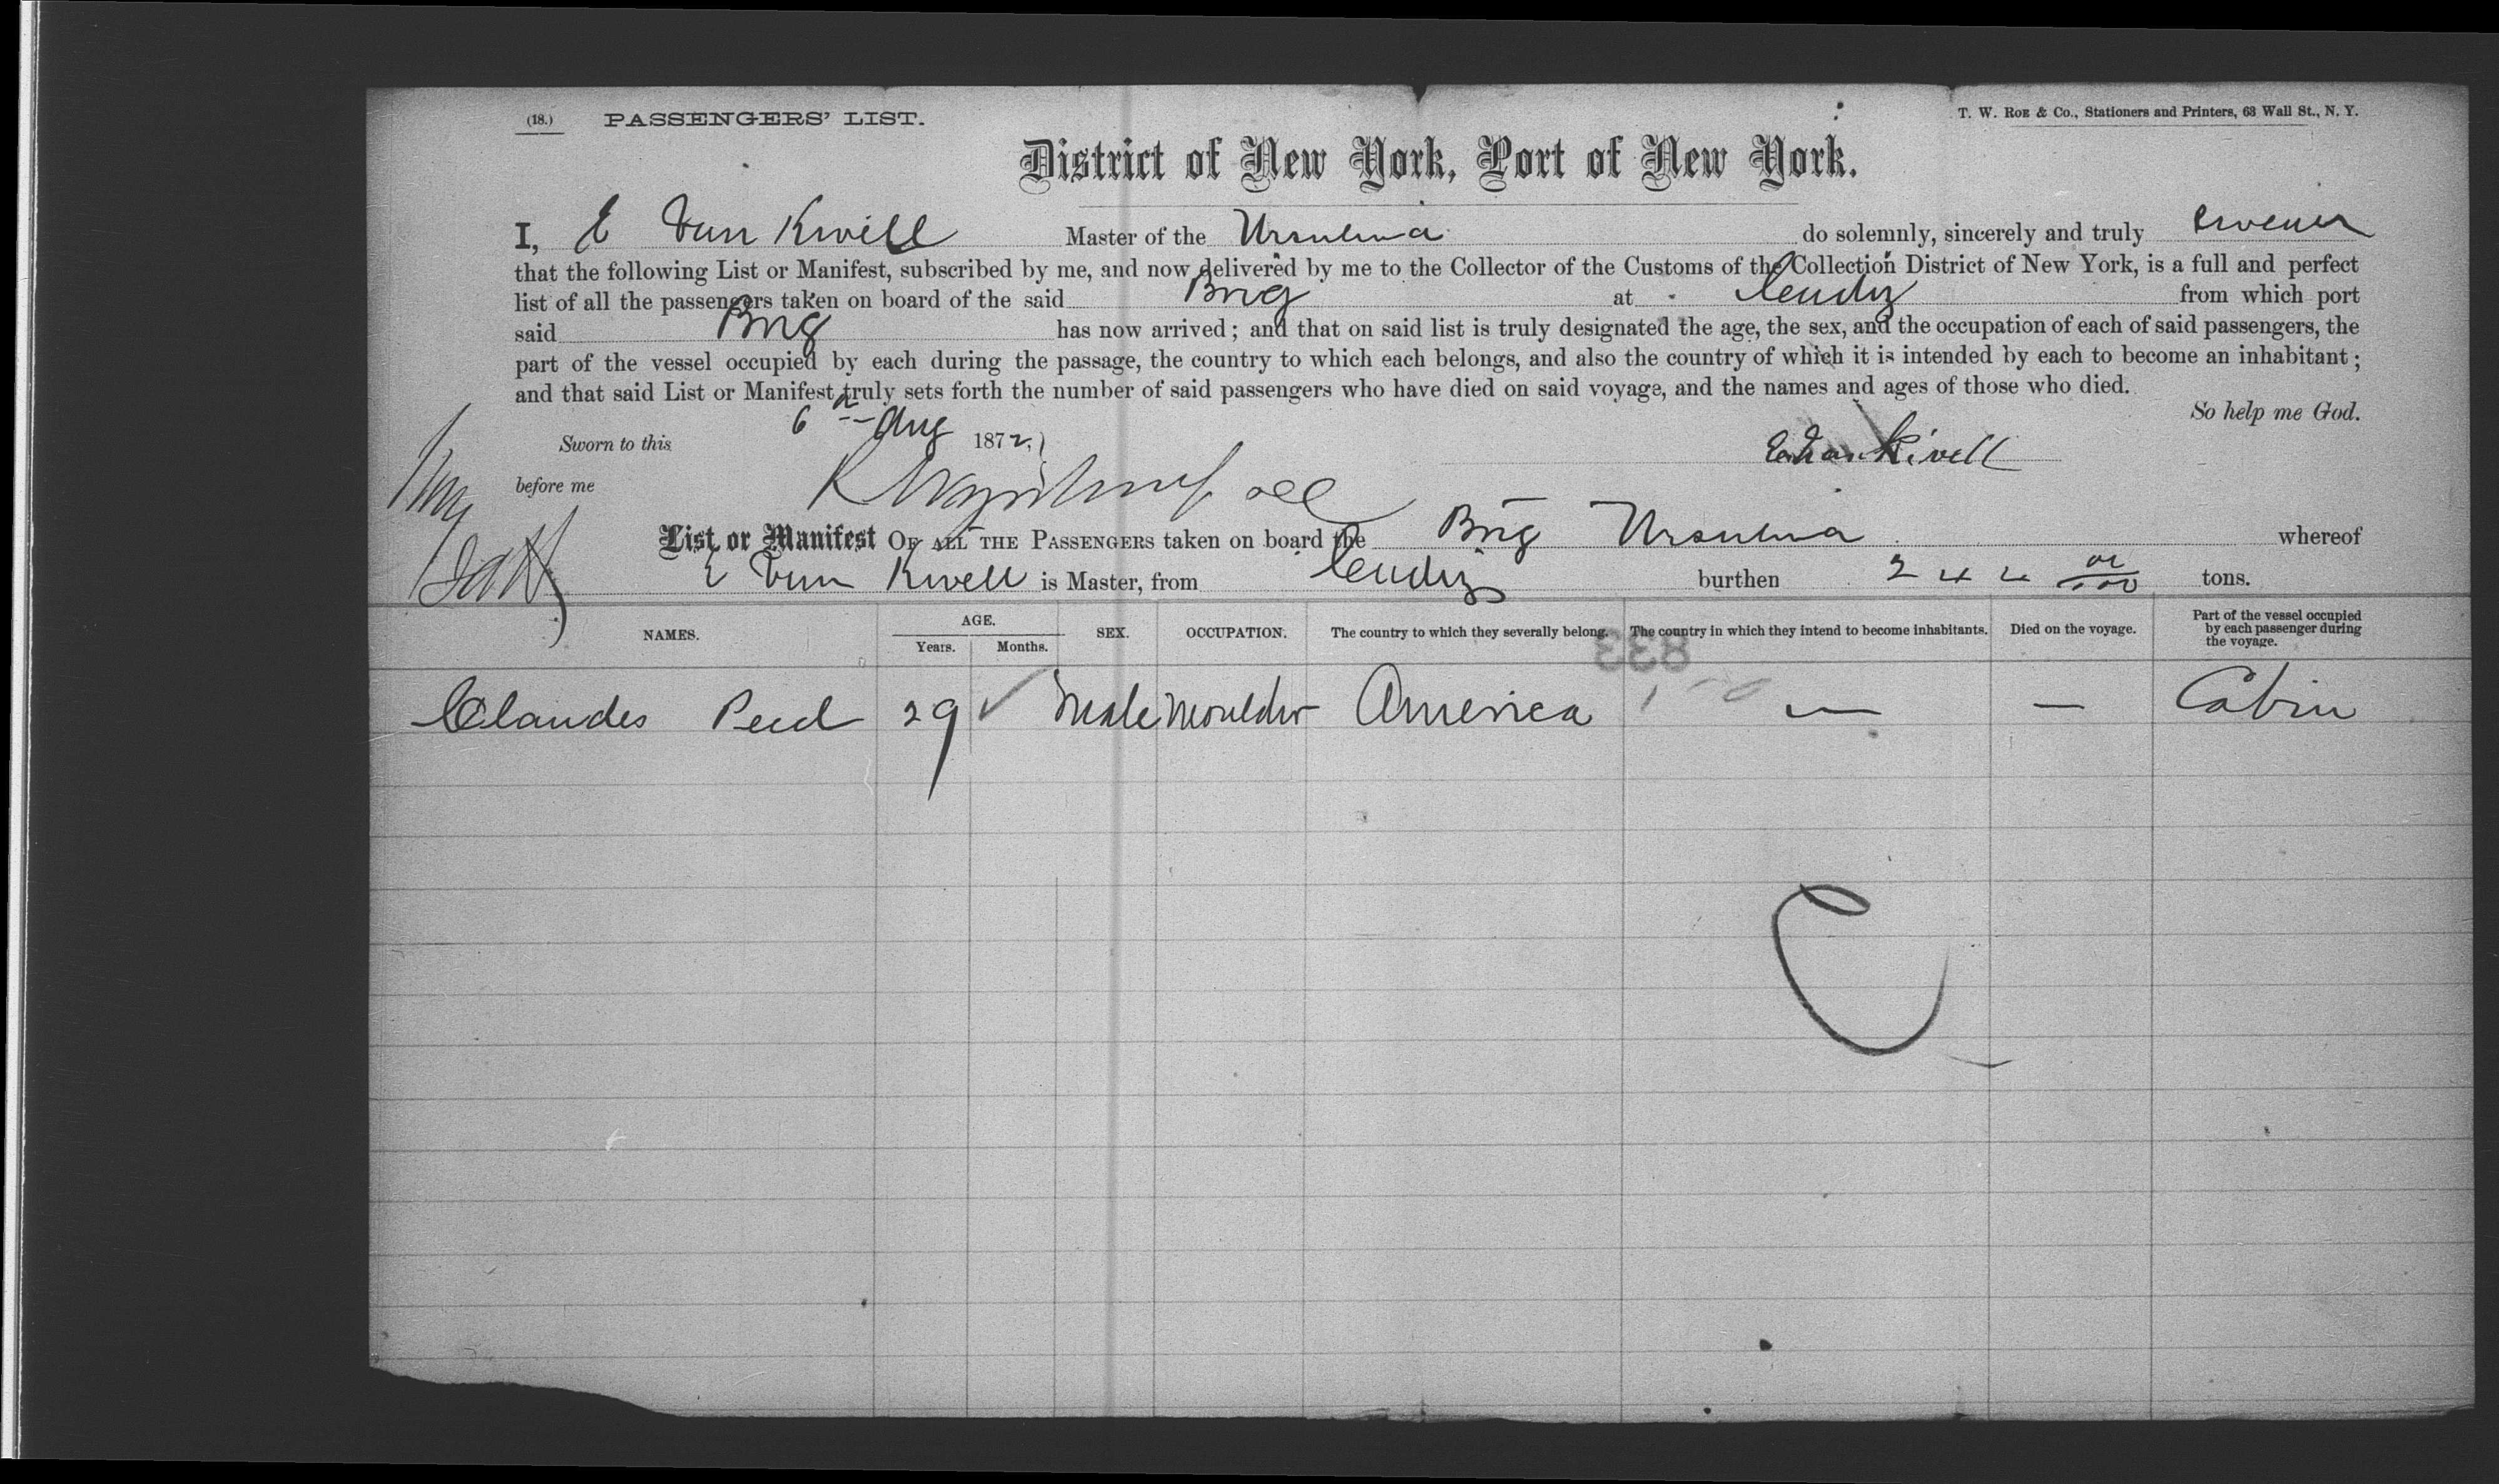 (18.) PASSENGERS' LIST. T. W. Roe & Co., Stationers and Printers, 63 Wall St., N. Y.
District of New York, Port of New York.
I, E Van Kwill Master of the Ursulina do solemnly, sincerely and truly swear
that the following List or Manifest, subscribed by me, and now delivered by me to the Collector of the Customs of the Collection District of New York, is a full and perfect
list of all the passengers taken on board of the said Brig at Cadiz from which port
said Brig has now arrived; and that on said list is truly designated the age, the sex, and the occupation of each of said passengers, the
part of the vessel occupied by each during the passage, the country to which each belongs, and also the country of which it is intended by each to become an inhabitant;
and that said List or Manifest truly sets forth the number of said passengers who have died on said voyage, and the names and ages of those who died.
So help me God.
Sworn to this 6th Aug 1872,
before me
List or Manifest OF ALL THE PASSENGERS taken on board the Brig Ursulina whereof
E Van Kwell is Master, from Cadiz burthen 244 tons.
NAMES. AGE. Years. Months. SEX. OCCUPATION. The country to which they severally belong. The country in which they intend to become inhabitants. Died on the voyage. Part of the vessel occupied by each passenger during the voyage.
833
Claudes 29 Male Moulder America — — Cabin